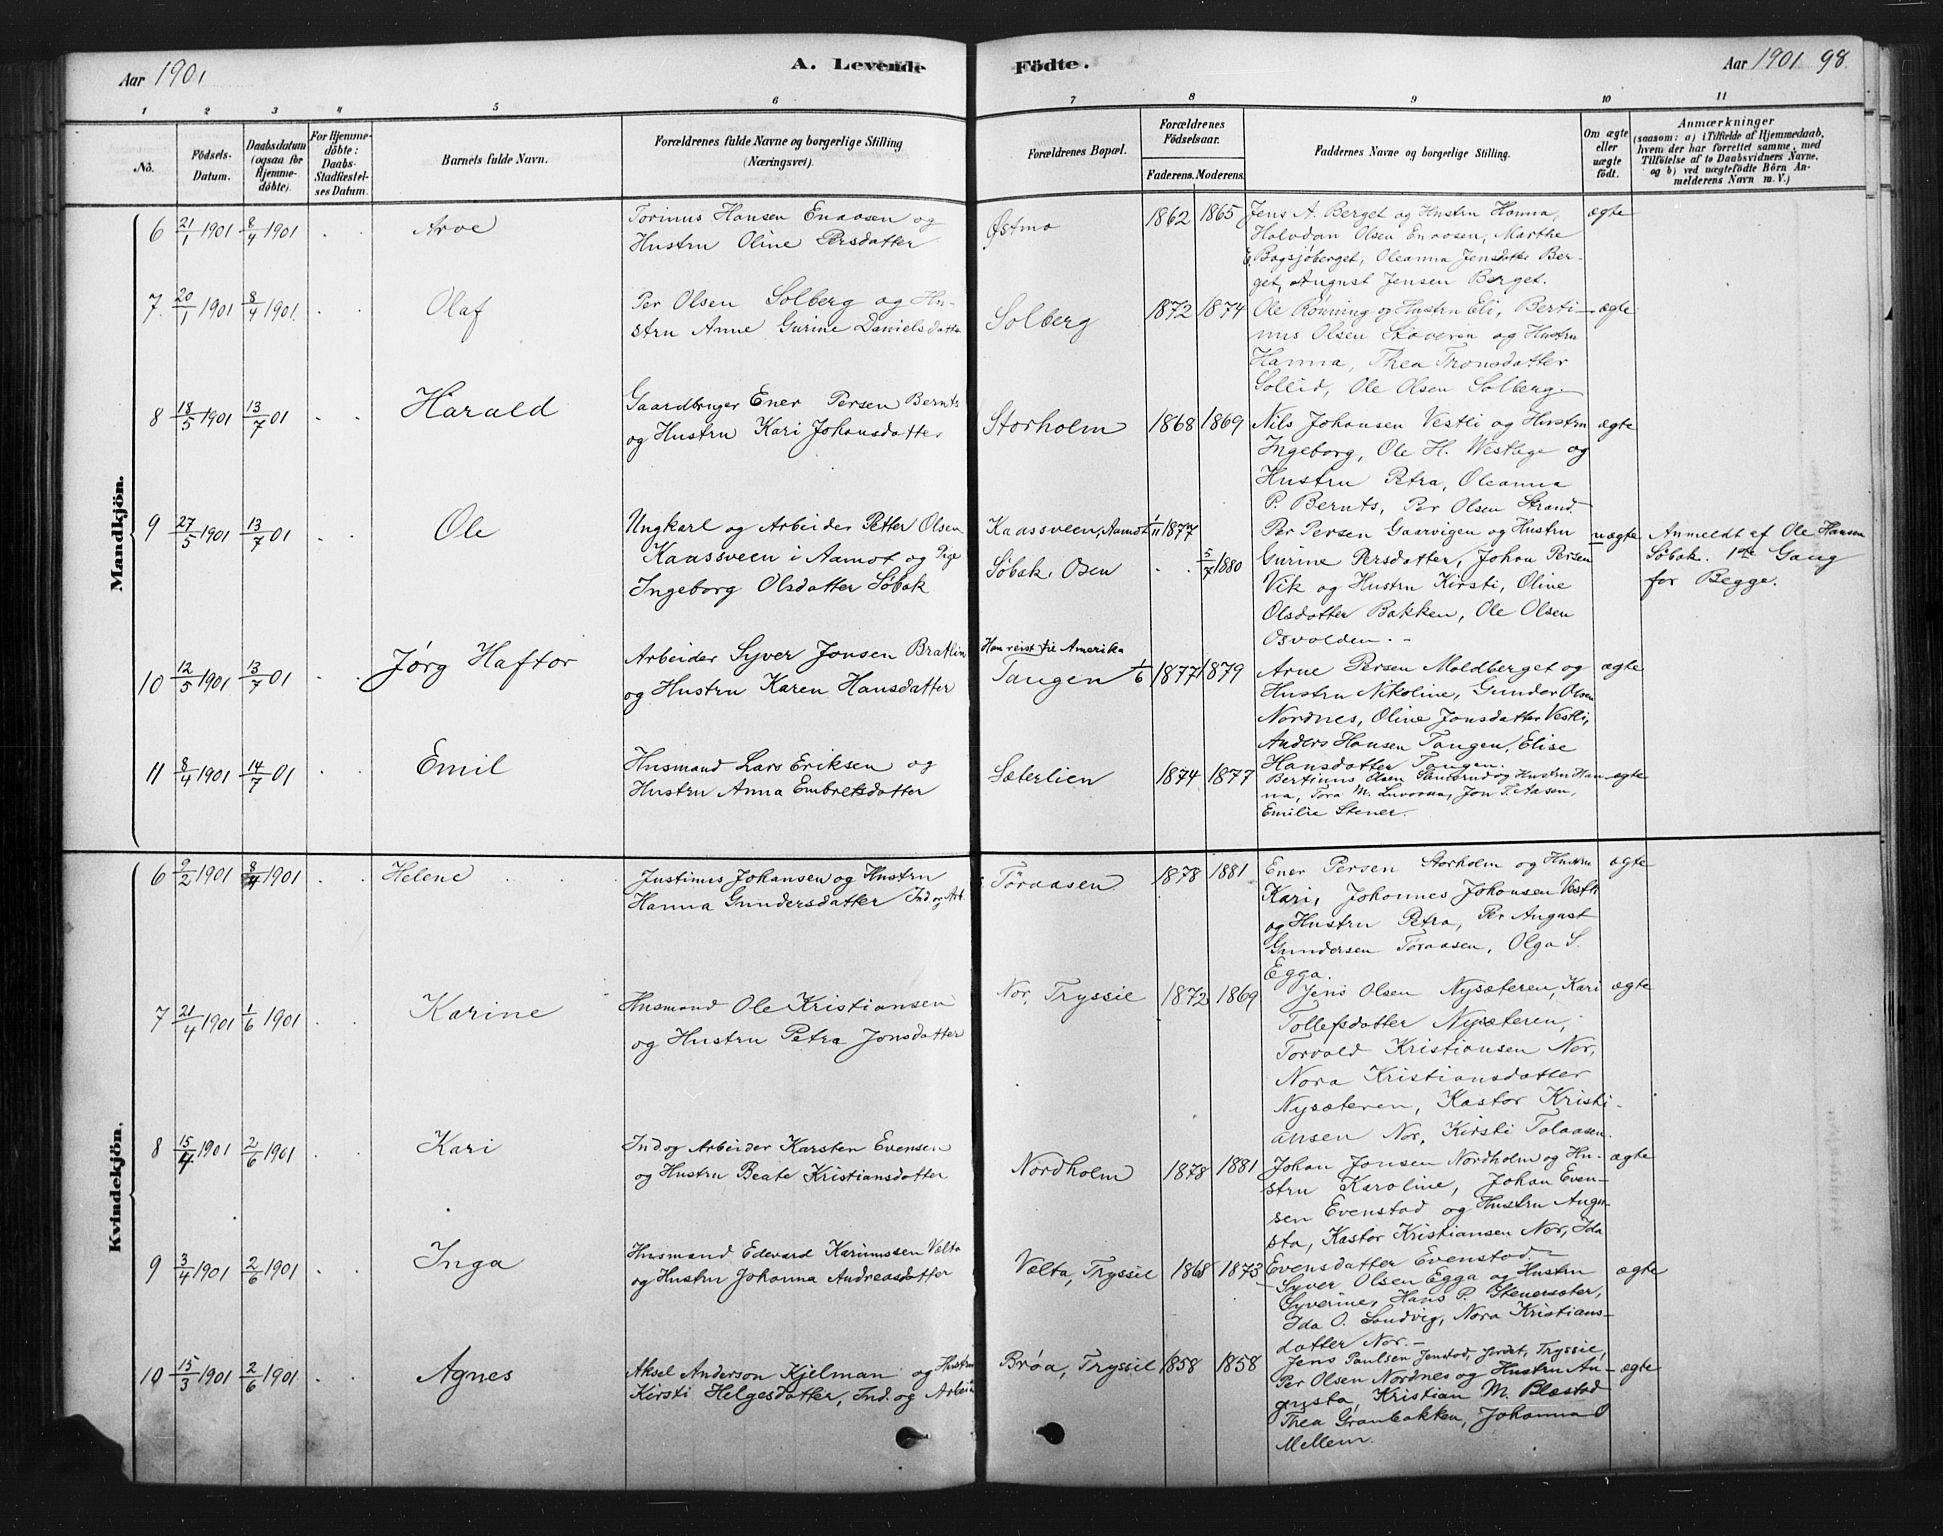 Aar 1901
A. Levende
Födte.
Aar 1901 98.
1 2 3 4 5 6 7 8 9 10 11
No.
Födsels-Datum.
Daabsdatum (ogsaa for Hjemme-döbte).
For Hjemme-döbte: Daabs-Stadfæstel-ses Datum.
Barnets fulde Navn.
Forældrenes fulde Navne og borgerlige Stilling
(Næringsvei).
Forældrenes Bopæl.
Forældrenes Födselsaar.
Faderens. Moderens.
Faddernes Navne og borgerlige Stilling.
Om ægte eller uægte födt.
Anmærkninger
(saasom: a) i Tilfælde af Hjemmedaab,
hvem der har forrettet samme, med
Tilföielse af to Daabsvidners Navne,
og b) ved uægtefödte Börn An-
melderens Navn m. V.)
Mandkjön.
6 21/1 1901 8/4 1901 . . Arve
Torinus Hansen Enaasen og
Hustru Oline Persdatter
Østmo 1862 1865
Jens A. Berget og Hustru Hanna,
Halvdan Olsen Enaasen, Marthe
Bogsjøberget, Oleanna Jensdatter Ber-
get, August Jensen Berget.
ægte
7. 20/1 1901 8/4 1901. . . Olaf
Per Olsen Solberg og Hu-
stru Anne Gurine Danielsdatter
Solberg 1872 1874
Ole Rønning og Hustru Eli, Berti-
nus Olsen Støveren og Hustru
Hanna, Thea Tronsdatter
Sollid, Ole Olsen Solberg.
ægte
8 18/5 1901 13/7 01 . . Harald
Gaardbruger Ener Persen Bernts
og Hustru Kari Johansdatter
Storholm 1868 1869
Nils Johansen Vestli og Hustru
Ingeborg, Ole H. Westlge og
Hustru Petra, Oleanna
P. Bernts, Per Olsen Strand.
ægte
9 27/5 1901 13/7 01 . . Ole
Ungkarl og Arbeider Petter Olsen
Kaassveen i Aamot og Pige
Ingeborg Olsdatter Søbak
Kaassveen, Aamot 1/11 1877
Søbak, Osen . . 5/7 1880
Per Persen Gaarvigen og Hustru
Gurine Persdatter, Johan Persen
Vik og Hustru Kirsti, Oline
Olsdatter Bakken, Ole Olsen
Osvolden. -
uægte
Anmeldt af Ole Hansen
Søbak. 1ste Gang
for Begge.
10 12/5 1901 13/7 01 . . Jørg Haftor
Arbeider Syver Jonsen Bratlien
og Hustru Karen Hansdatter
Han reist til Amerika
Tangen 1/6 1877 1879
Arne Persen Moldberget og
Hustru Nikoline, Gunder Olsen
Nordnes, Oline Jonsdatter Vestli,
Anders Hansen Tangen, Elise
Hansdatter Tangen.
ægte
11 8/4 1901 14/7 01 . . Emil
Husmand Lars Eriksen og
Hustru Anna Embretsdatter
Sæterlien 1874 1877
Bertinus Olsen og Hustru Han-
na, Tora M. Jon T. Aasen,
Emilie Stener.
ægte
Kvindekjön.
6 9/2 1901 8/4 1901 . . Helene
Justinus Johansen og Hustru
Hanna Gundersdatter Ind. og Arb.
Tøraasen 1878 1881
Ener Persen Storholm og Hustru
Kari, Johannes Johansen Vestli
og Hustru Petra, Per August
Gundersen Tøraasen, Olga S.
Egga.
ægte
7 21/4 1901 1/6 1901 . . Karine
Husmand Ole Kristiansen
og Hustru Petra Jonsdatter
Nor, Tryssil 1872 1869
Jens Olsen Nysæteren, Kari
Tollefsdatter Nysæteren,
Torvald Kristiansen Nor,
Nora Kristiansdatter
Nysæteren, Kastor Kristi-
ansen Nor, Kirsti Tolaasen.
ægte
8 15/4 1901 2/6 1901 . . Kari
Ind. og Arbeider Karsten Evensen
og Hustru Beate Kristiansdatter
Nordholm 1878 1881
Johan Jonsen Nordholm og Hu-
stru Karoline, Johan Even-
sen Evenstad og Hustru Augu-
sta, Kastor Kristiansen Nor, Ida
Evensdatter Evenstad.
ægte
9 3/4 1901 2/6 1901 . . Inga
Husmand Edevard Karinussen Vælta
og Hustru Johanna Andreasdatter
Vælta, Tryssil 1868 1873
Syver Olsen Egga og Hustru
Syverine, Hans P. Stenersæter,
Ida O. Sandvig, Nora Kristians-
datter Nor. -
ægte
10 15/3 1901 2/6 1901 . . Agnes
Aksel Anderson Kjelman og Hustru
Kirsti Helgesdatter, Ind. og Arbeider
Brøa, Tryssil 1858 1858
Jens Paulsen Jenstad, Jordet, Tryssil,
Per Olsen Nordnes og Hustru Au-
gusta, Kristian M. Blæstad
Thea Granbakken, Johanna O
Mellem.
ægte